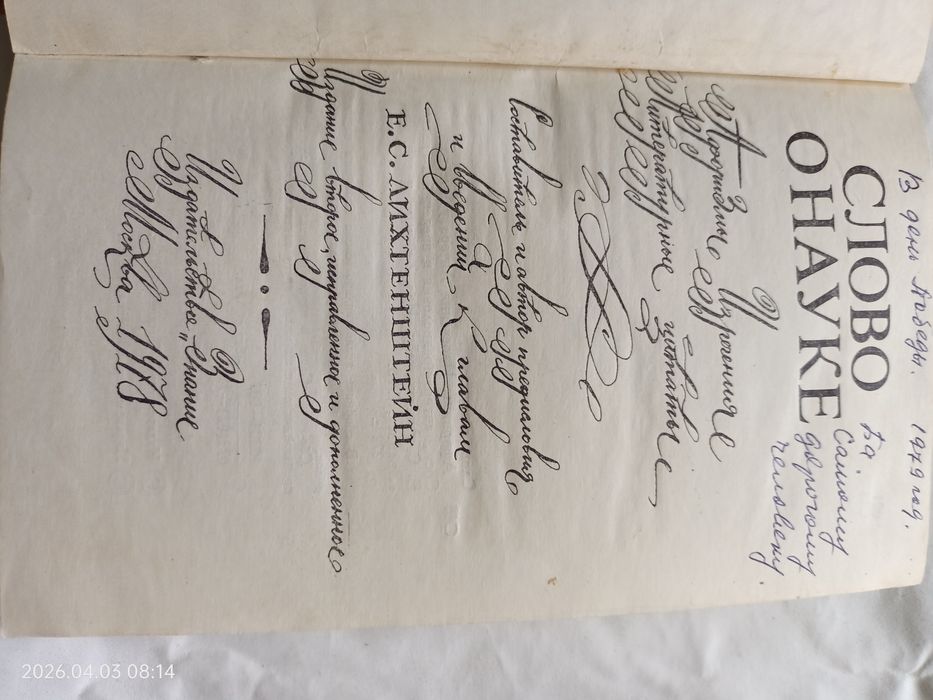 В день Победы. 1979 год.
СЛОВО
О НАУКЕ
Самому
дорогому
человеку.
Афоризмы Изречения
Литературные цитаты
Составитель и автор предисловия
и введений к главам
Е.С. ЛИХТЕНШТЕЙН
Издание второе, исправленное и дополненное
Издательство „Знание
Москва 1978
2026.04.03 08:14